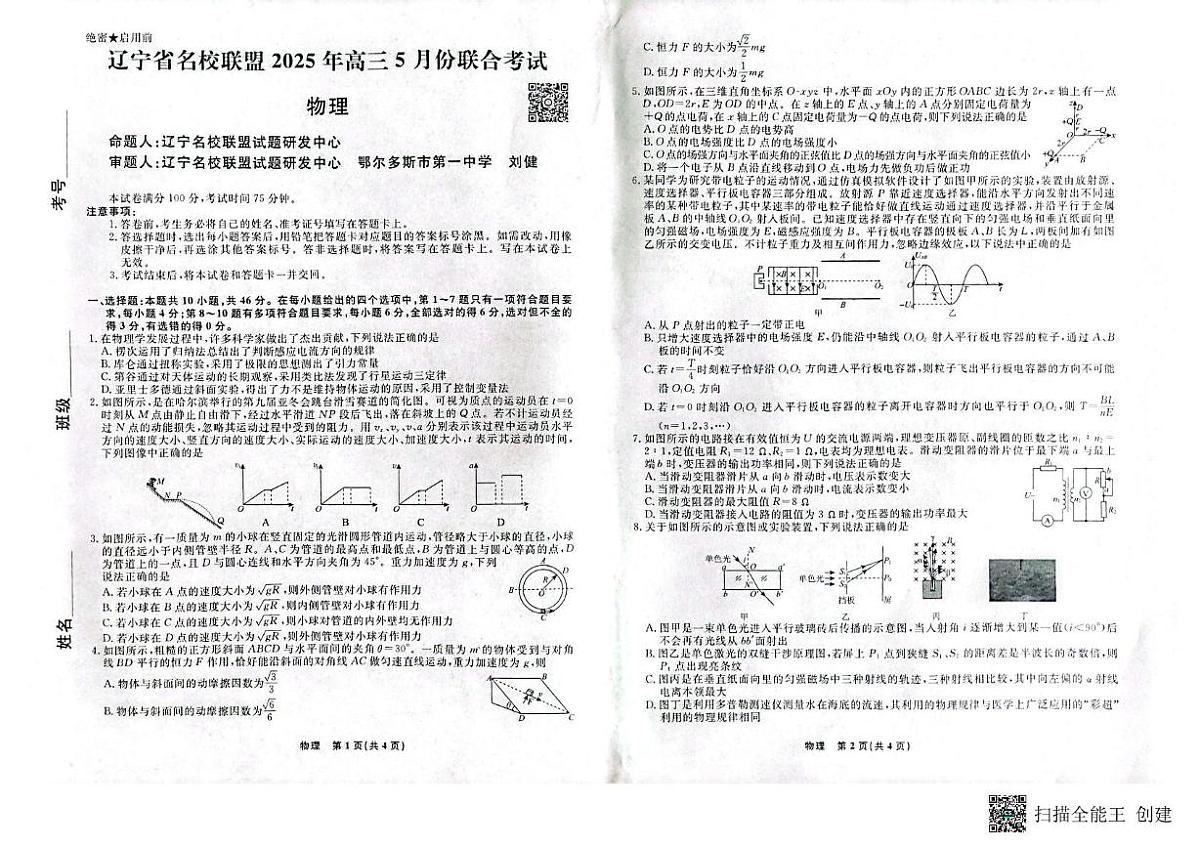 绝密★启用前
辽宁省名校联盟2025年高三5月份联合考试
物理
命题人:辽宁名校联盟试题研发中心
审题人:辽宁名校联盟试题研发中心 鄂尔多斯市第一中学 刘健
考号
班级
姓名
本试卷满分100分,考试时间75分钟。
注意事项:
1.答卷前,考生务必将自己的姓名、准考证号填写在答题卡上。
2.答选择题时,选出每小题答案后,用铅笔把答题卡对应题目的答案标号涂黑。如需改动,用橡
皮擦干净后,再选涂其他答案标号。答非选择题时,将答案写在答题卡上。写在本试卷上
无效。
3.考试结束后,将本试卷和答题卡一并交回。
一、选择题:本题共10小题,共46分。在每小题给出的四个选项中,第1~7题只有一项符合题目要
求,每小题4分;第8~10题有多项符合题目要求,每小题6分,全部选对的得6分,选对但不全的
得3分,有选错的得0分。
1.在物理学发展过程中,许多科学家做出了杰出贡献,下列说法正确的是
A.楞次运用了归纳法总结出了判断感应电流方向的规律
B.库仑通过扭称实验,采用了极限的思想测出了引力常量
C.第谷通过对天体运动的长期观察,采用类比法发现了行星运动三定律
D.亚里士多德通过斜面实验,得出了力不是维持物体运动的原因,采用了控制变量法
2.如图所示,是在哈尔滨举行的第九届亚冬会跳台滑雪赛道的简化图。可视为质点的运动员在t=0
时刻从M点由静止自由滑下,经过水平滑道NP段后飞出,落在斜坡上的Q点。若不计运动员经
过N点的动能损失,忽略其运动过程中受到的阻力。用vₓ、vᵧ、v、a分别表示该过程中运动员水平
方向的速度大小、竖直方向的速度大小、实际运动的速度大小、加速度大小,t表示其运动的时间,
下列图像中正确的是
M N P Q
A B C D
3.如图所示,有一质量为m的小球在竖直固定的光滑圆形管道内运动,管径略大于小球的直径,小球
的直径远小于内侧管壁半径R。A、C为管道的最高点和最低点,B为管道上与圆心等高的点,D
为管道上的一点,且D与圆心连线和水平方向夹角为45°。重力加速度为g,下列
说法正确的是
A.若小球在A点的速度大小为√gR,则外侧管壁对小球有作用力
B.若小球在B点的速度大小为√gR,则内侧管壁对小球有作用力
C.若小球在C点的速度大小为√gR,则小球对管道的内外壁均无作用力
D.若小球在D点的速度大小为√gR,则外侧管壁对小球有作用力
4.如图所示,粗糙的正方形斜面ABCD与水平面间的夹角θ=30°。一质量为m的物体受到与对角
线BD平行的恒力F作用,恰好能沿斜面的对角线AC做匀速直线运动,重力加速度为g,则
A.物体与斜面间的动摩擦因数为√3/3
B.物体与斜面间的动摩擦因数为√6/6
物理 第1页(共4页)
C.恒力F的大小为√2/2mg
D.恒力F的大小为1/2mg
5.如图所示,在三维直角坐标系O-xyz中,水平面xOy内的正方形OABC边长为2r,z轴上有一点
D,OD=2r,E为OD的中点。在z轴上的E点、y轴上的A点分别固定电荷量为
+Q的点电荷,在x轴上的C点固定电荷量为-Q的点电荷,则下列说法正确的是
A.O点的电势比D点的电势高
B.O点的电场强度比D点的电场强度小
C.O点的场强方向与水平面夹角的正弦值比D点的场强方向与水平面夹角的正弦值小
D.将一个电子从B点沿直线移动到O点,电场力先做负功后做正功
6.某同学为研究带电粒子的运动情况,通过仿真模拟软件设计了如图甲所示的实验,装置由放射源、
速度选择器、平行板电容器三部分组成。放射源P靠近速度选择器,能沿水平方向发射出不同速
率的某种带电粒子,其中某速率的带电粒子能恰好做直线运动通过速度选择器,并沿平行于金属
板A、B的中轴线O₁O₂射入板间。已知速度选择器中存在竖直向下的匀强电场和垂直纸面向里
的匀强磁场,电场强度为E,磁感应强度为B。平行板电容器的极板A、B长为L,两板间加有如图
乙所示的交变电压。不计粒子重力及相互间作用力,忽略边缘效应,以下说法中正确的是
甲 乙
A.从P点射出的粒子一定带正电
B.只增大速度选择器中的电场强度E,仍能沿中轴线O₁O₂射入平行板电容器的粒子,通过A、B
板的时间不变
C.若t=T/4时刻粒子恰好沿O₁O₂方向进入平行板电容器,则粒子飞出平行板电容器的方向不可能
沿O₁O₂方向
D.若t=0时刻沿O₁O₂进入平行板电容器的粒子离开电容器时方向也平行于O₁O₂,则T=BL/nE
(n=1,2,3,…)
7.如图所示的电路接在有效值恒为U的交流电源两端,理想变压器原、副线圈的匝数之比n₁:n₂=
2:1,定值电阻R₁=12Ω、R₂=1Ω,电表均为理想电表。滑动变阻器的滑片位于最下端a与最上
端b时,变压器的输出功率相同,则下列说法正确的是
A.当滑动变阻器滑片从a向b滑动时,电压表示数变大
B.当滑动变阻器滑片从a向b滑动时,电流表示数变小
C.滑动变阻器的最大阻值R=8Ω
D.当滑动变阻器接入电路的阻值为3Ω时,变压器的输出功率最大
8.关于如图所示的示意图或实验装置,下列说法正确的是
单色光 单色光 挡板 屏
甲 乙 丙 丁
A.图甲是一束单色光进入平行玻璃砖后传播的示意图,当入射角i逐渐增大到某一值(i<90°)后
不会再有光线从bb′面射出
B.图乙是单色激光的双缝干涉原理图,若屏上P₁点到狭缝S₁、S₂的距离差是半波长的奇数倍,则
P₁点出现亮条纹
C.图丙是在垂直纸面向里的匀强磁场中三种射线的轨迹,三种射线相比较,其中向左偏的α射线
电离本领最大
D.图丁是利用多普勒测速仪测量水在海底的流速,其利用的物理规律与医学上广泛应用的“彩超”
利用的物理规律相同
物理 第2页(共4页)
扫描全能王 创建